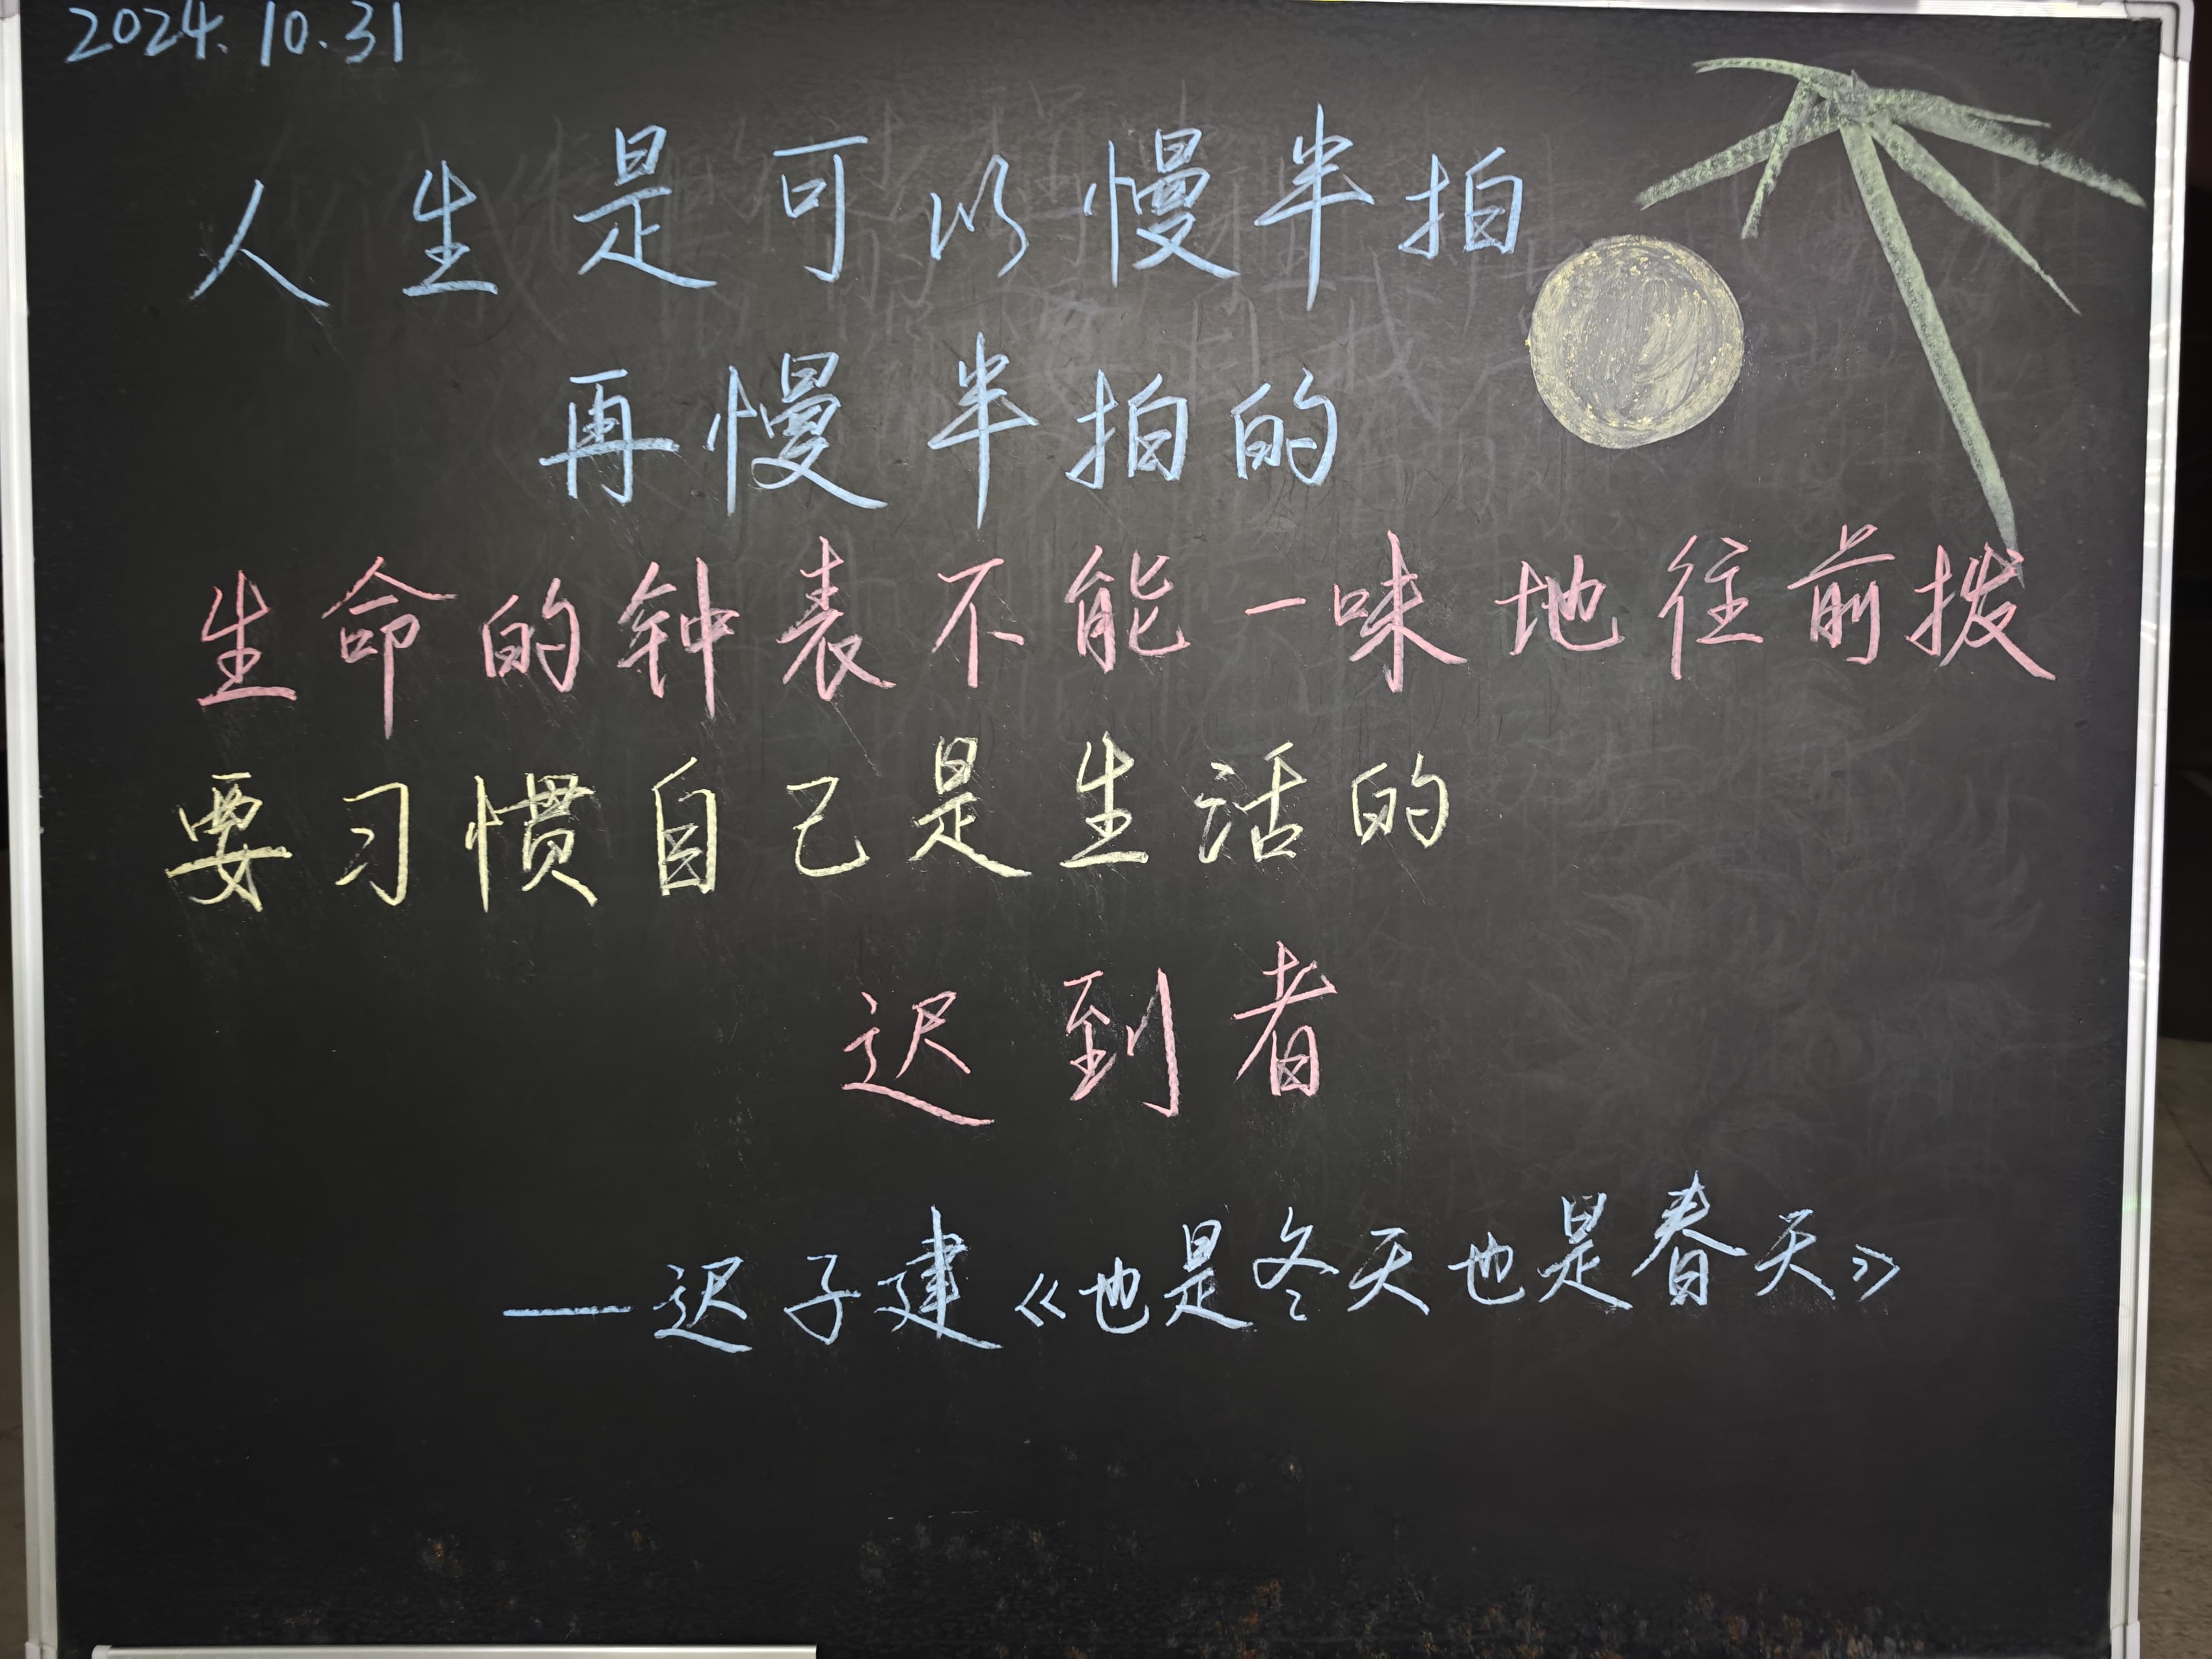 2024.10.31
人生是可以慢半拍
再慢半拍的
生命的钟表不能一味地往前拨
要习惯自己是生活的
迟到者
——迟子建《也是冬天也是春天》